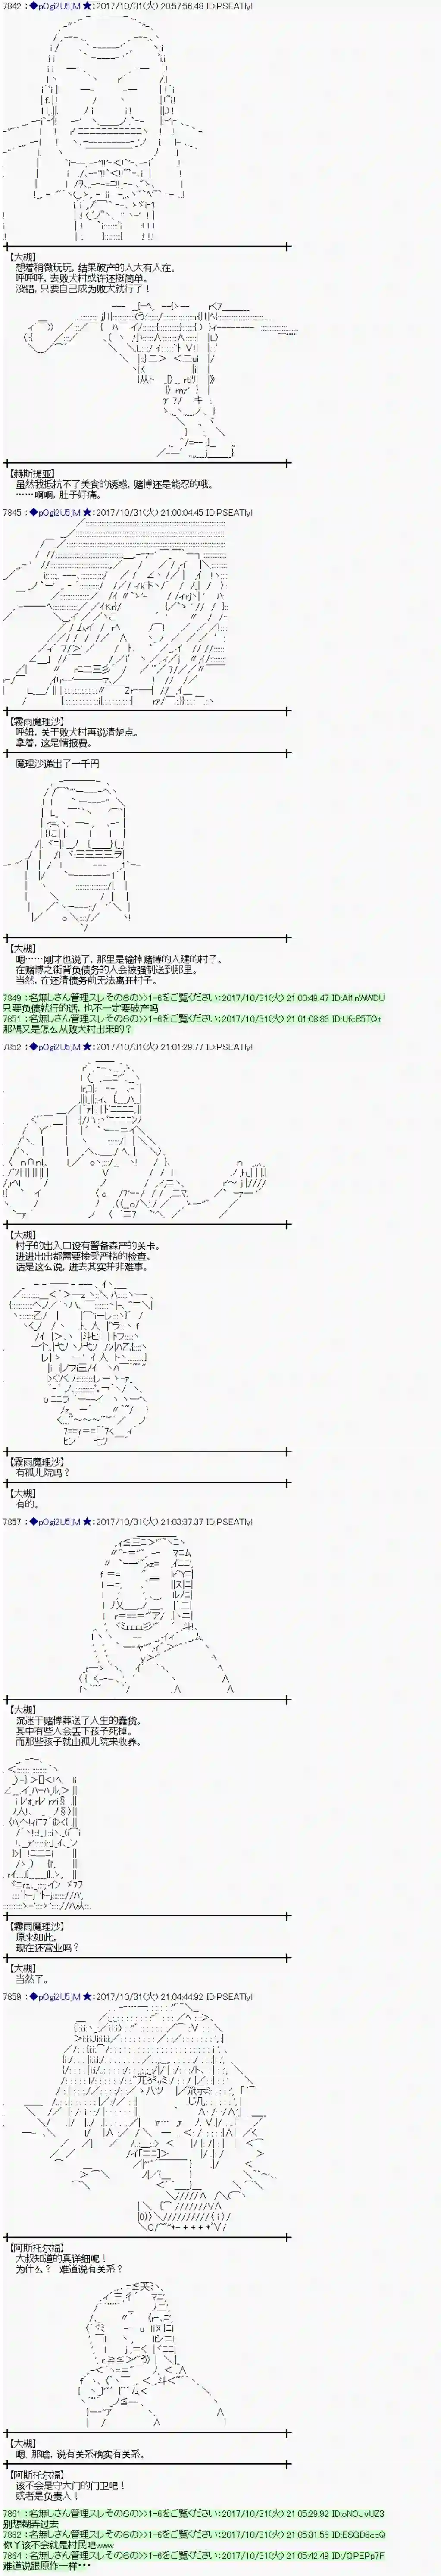 7842 : ◆pOgi2U5jM ★ : 2017/10/31(火) 20:57:56.48 ID:PSEATlyI
【大槻】
想着稍微玩玩，结果破产的人大有人在。
呼呼呼，去败犬村或许还挺简单。
没错，只要自己成为败犬就行了！
【赫斯提亚】
虽然我抵抗不了美食的诱惑，赌博还是能忍的哦。
……啊啊，肚子好痛。
7845 : ◆pOgi2U5jM ★ : 2017/10/31(火) 21:00:04.45 ID:PSEATlyI
【霧雨魔理沙】
呼姆，关于败犬村再说清楚点。
拿着，这是情报费。
魔理沙递出了一千円
【大槻】
嗯……刚才也说了，那里是输掉赌博的人建的村子。
在赌博之街背负债务的人会被强制送到那里。
当然，在还清债务前无法离开村子。
7849 : 名無しさん管理スレその６の>>1-6をご覧ください : 2017/10/31(火) 21:00:49.47 ID:AI1nWWDU
只要负债就行的话，也不一定要破产吗
7851 : 名無しさん管理スレその６の>>1-6をご覧ください : 2017/10/31(火) 21:01:08.86 ID:UfcB5TQt
那鳰又是怎么从败犬村出来的？
7852 : ◆pOgi2U5jM ★ : 2017/10/31(火) 21:01:29.77 ID:PSEATlyI
【大槻】
村子的出入口设有警备森严的关卡。
进进出出都需要接受严格的检查。
话是这么说，进去其实并非难事。
【霧雨魔理沙】
有孤儿院吗？
【大槻】
有的。
7857 : ◆pOgi2U5jM ★ : 2017/10/31(火) 21:03:37.37 ID:PSEATlyI
【大槻】
沉迷于赌博葬送了人生的蠢货。
其中有些人会丢下孩子死掉。
而那些孩子就由孤儿院来收养。
【霧雨魔理沙】
原来如此。
现在还营业吗？
【大槻】
当然了。
7859 : ◆pOgi2U5jM ★ : 2017/10/31(火) 21:04:44.92 ID:PSEATlyI
【阿斯托尔福】
大叔知道的真详细呢！
为什么？ 难道说有关系？
【大槻】
嗯、那啥，说有关系确实有关系。
【阿斯托尔福】
该不会是守大门的门卫吧！
或者是负责人！
7861 : 名無しさん管理スレその６の>>1-6をご覧ください : 2017/10/31(火) 21:05:29.92 ID:oNOJvUZ3
别想糊弄过去
7862 : 名無しさん管理スレその６の>>1-6をご覧ください : 2017/10/31(火) 21:05:31.56 ID:ESGD6ccQ
你丫该不会就是村民吧www
7864 : 名無しさん管理スレその６の>>1-6をご覧ください : 2017/10/31(火) 21:05:42.49 ID:/QPEPp7F
难道说跟原作一样・・・